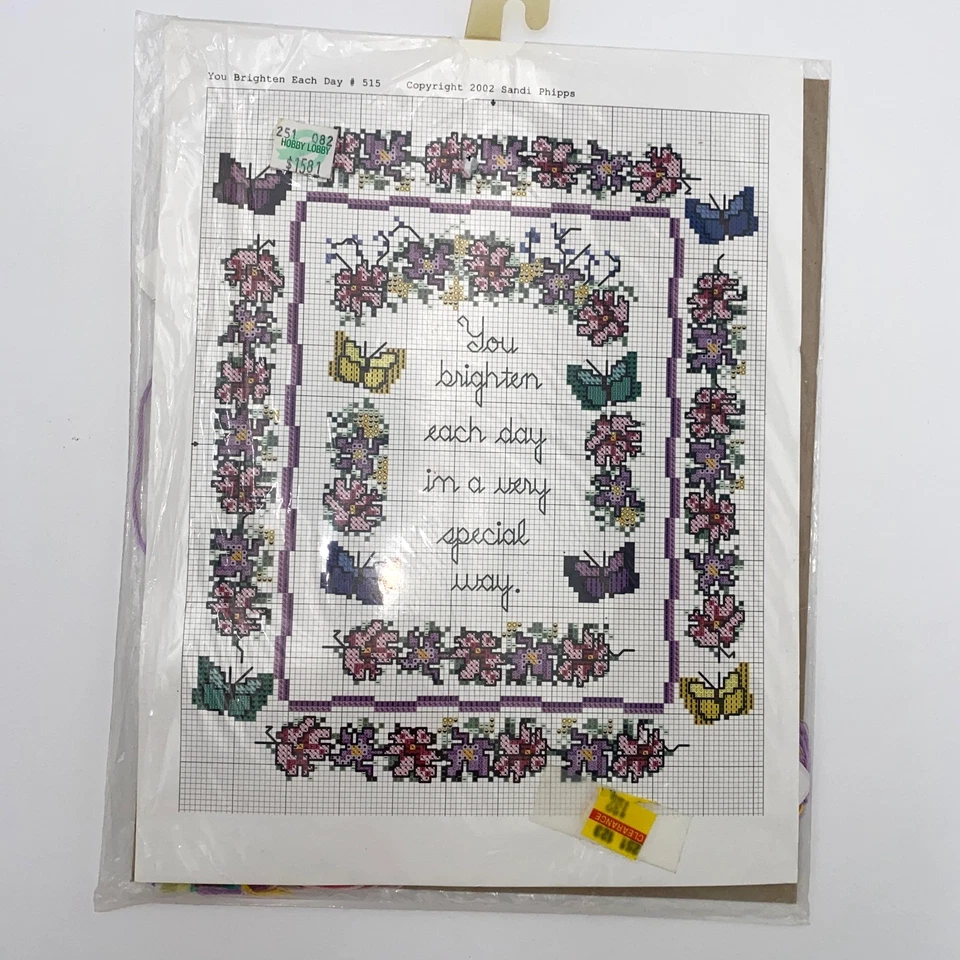 You Brighten Each Day # 515 Copyright 2002 Sandi Phipps
251 082
HOBBY LOBBY
$1581
You
brighten
each day
in a very
special
way.
CLEARANCE
251 123